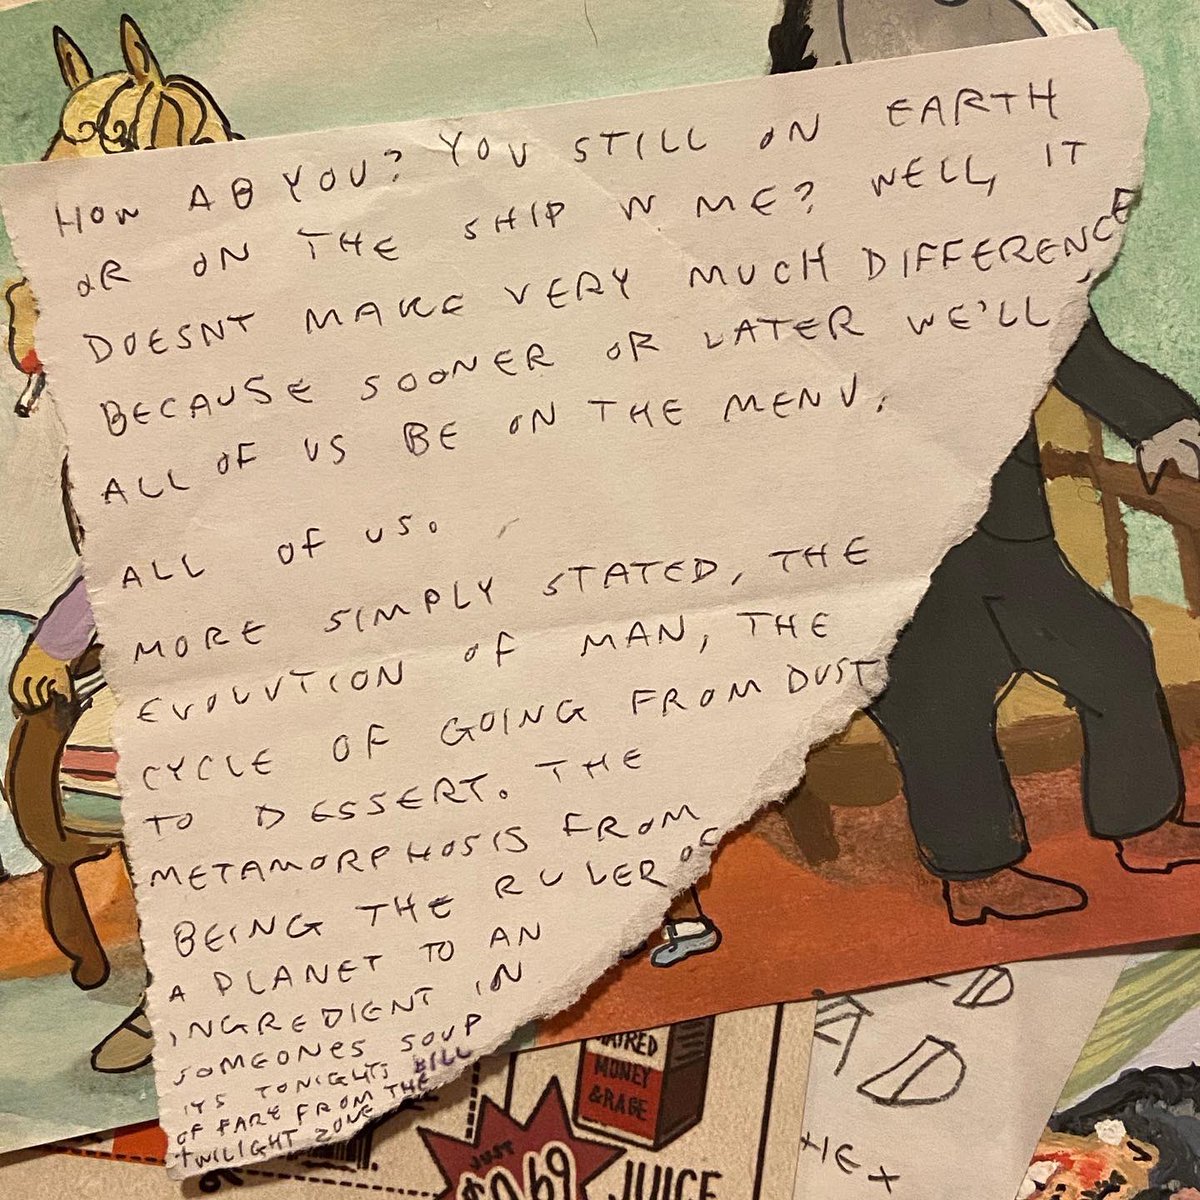 HOW AB YOU? YOU STILL ON EARTH
OR ON THE SHIP W ME? WELL, IT
DOESNT MAKE VERY MUCH DIFFERENCE,
BECAUSE SOONER OR LATER WE'LL
ALL OF US BE ON THE MENU.
ALL OF US.
MORE SIMPLY STATED, THE
EVOLUTION OF MAN, THE
CYCLE OF GOING FROM DUST
TO DESSERT. THE
METAMORPHOSIS FROM
BEING THE RULER OF
A PLANET TO AN
INGREDIENT IN
SOMEONES SOUP
ITS TONIGHTS BILL
OF FARE FROM THE
TWILIGHT ZONE
HATRED
MONEY
&RAGE
JUST
$0.69
JUICE